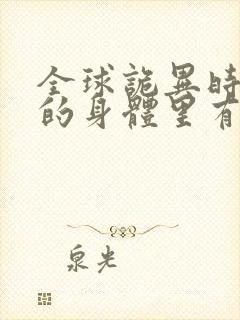 全球詭異時
的身體里有
泉光